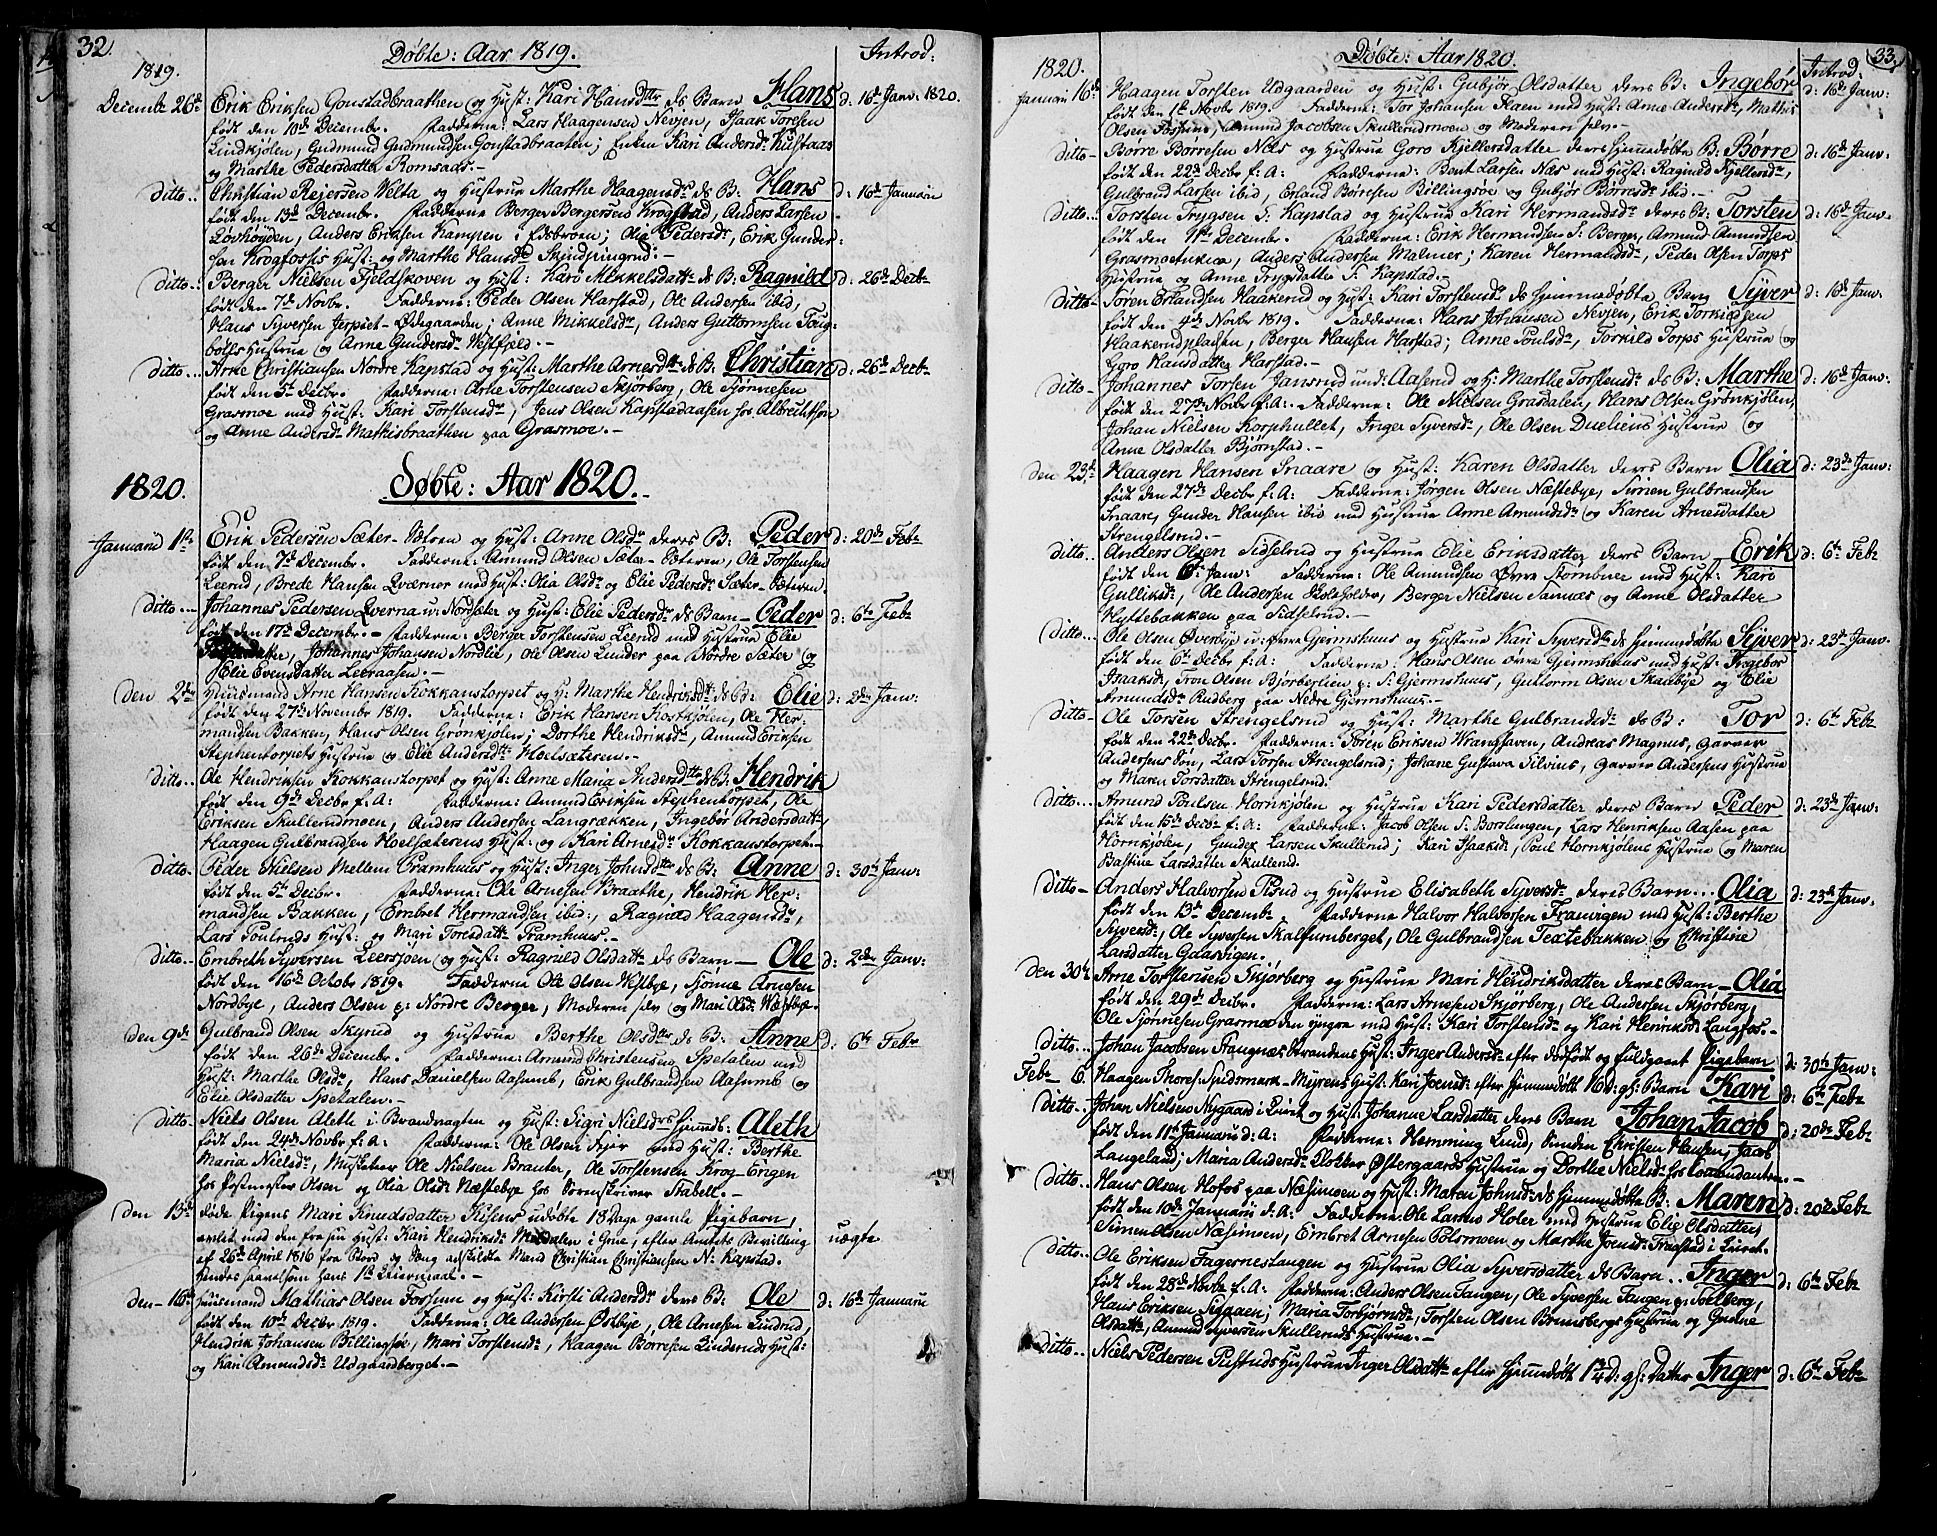 32.
Døbte: Aar 1819.
Introd:
1819.
Decembr 26de Erik Eriksen Gonstadbraathen og Hust: Kari Hansdtr ds Barn Hans d: 16de Janv: 1820.
født den 10de Decembr. Fadderne: Lars Haagensen Nevjen, Isaak Toresen
Lindkjølen, Gudmund Gudmundsen Gonstadbraaten; Enken Kari Andersdr Kustaas
og Marthe Pedersdatter Romsaas.-
ditto.. Christian Reiersen Velta og Hustrue Marthe Haagensdr ds B: Hans d: 16de Januarii
født den 13de Decembr. Fadderne Berger Bergersen Krogstad, Anders Larsen
Løvhøyden, Anders Eriksen Kampen i Eidsbroen; Olia Pedersdr, Erik Gunder-
sen Krogfosses Hust: og Marthe Hansdr Skindpungrud.-
ditto.. Berger Nielsen Fjeldskoven og Hust: Kari Mikkelsdatter ds B: Ragnild d: 26de Decbr
født den 7de Novbr. Fadderne: Peder Olsen Harstad, Ole Andersen ibid,
Hans Syversen Jerpset-Ødegaarden; Anne Mikkelsdr, Anders Guttormsen Toug-
bølls Hustrue og Anne Gundersdr Vestfjeld.-
ditto... Arne Christiansen Nordre Kapstad og Hust: Marthe Arnesdtr ds B. Christian d: 26de Decbr
født den 5te Decbr. Fadderne: Arne Torstensen Skjørberg, Ole Sjønnesen
Grasmoe med Hust: Kari Torstensdr, Jens Olsen Kapstadaasen hos Albrechtsen
og Anne Andersdr Mathisbraathen paa Grasmoe.-
1820. Døbte: Aar 1820.-
Januarii 1te Erik Pedersen Sæter-Østeren og Hust: Anne Olsdr deres B: Peder d: 20de Febr
født den 7de Decembr. Fadderne: Amund Olsen Sæter-Østeren, Ole Torstensen
Leerud, Brede Hansen Qværner med Hust: Olia Olsdr og Elie Pedersdr Sæter-Østeren.
ditto.... Johannes Pedersen Qverna u: Nordsæter og Hust: Elie Pedersdr ds Barn- Peder d: 6te Febr
født den 17de Decembr.- Fadderne: Berger Torstensen Leerud med Hustrue Elie
Johannes Johansen Nordlie, Ole Olsen Lunder paa Nordre Sæter og
Elie Evensdatter Leeraasen.-
den 2den Huusmand Arne Hansen Kokkanstorpet og H: Marthe Hendriksdtr ds B: Elie d: 2den Janv:
født den 27de Novembr 1819. Fadderne: Erik Hansen Kostkjølen, Ole Her-
mandsen Bakken, Hans Olsen Grønkjølen; Dorthe Hendriksdr, Amund Eriksen
Stephentorpets Hustrue og Elie Andersdtr Hoelsæteren.-
ditto. Ole Hendriksen Kokkanstorpet og Hust: Anne Maria Andersdtr ds B. Hendrik
født den 9de Decbr f. A: Fadderne: Amund Eriksen Stephentorpet, Ole
Eriksen Skullerudmoen, Anders Andersen Langrækken, Ingebør Andersdatter,
Haagen Gulbrandsen Hoelsæterens Hust: og Kari Arnesdr Kokkanstorpet.-
ditto- Peder Nielsen Mellem Pramhuus og Hust: Inger Johnsdtr ds B: Anne d: 30te Janv:
født den 5te Decbr. Fadderne: Ole Arnesen Braathe, Hendrik Her-
mandsen Bakken, Embret Hermandsen ibid., Ragnild Haagensdr,
Lars Poulruds Hust: og Mari Toresdtr Pramhuus.-
ditto.- Embreth Syversen Leersjøen og Hust: Ragnild Olsdtr ds Barn - Ole d: 2den Janv:
født den 16de Octobr 1819. Fadderne Ole Olsen Vestbye, Sjønne Arnesen
Nordbye, Anders Olsen p: Nordre Berger, Moderen selv og Mari Olsdr Næstbye.-
den 9de Gulbrand Olsen Skyrud og Hustrue Berthe Olsdtr ds B: Anne d: 6te Febr
født den 26de Decembr. Fadderne: Amund Christensen Spetalen med
Hust: Marthe Olsdr, Hans Danielsen Aasumb, Erik Gulbrandsen Aasumb og
Elie Olsdatter Spetalen.-
ditto- Niels Olsen Aleth i Brandvagten og Hust: Sigri Nielsdrs hjemdb: Aleth
født den 24de Novbr f. A: Fadderne: Ole Olsen Skjør med Hust: Berthe
Maria Nielsdr, Musketeer Ole Nielsen Brauter, Ole Torstensen Krog-Engen
hos Postmester Olsen og Olia Olsdr Næstebye hos Sorenskriver Stabell.-
den 13de Løse Pigens Mari Knudsdatter Kisens udøbte 18 Dage gamle Pigebarn, uægte
avlet med den fra sin Hust: Kari Hendriksdr Mosdalen i Grue, efter Amtets Bevilling
af 26de April 1816 fra Bord og Seng adskildte Mand Christian Christiansen N: Kapstad.
Hendes saavelsom hans 1te Leiermaal.-
den- 16de Huusmand Mathias Olsen Fossum og Hust: Kirsti Andersdr deres B: Ole d: 16de Januarii
født den 10de Decbr 1819. Fadderne: Ole Andersen Østbye, Ole Arnesen Linderud,
Hendrik Johansen Billingsøe, Mari Torstensdr, Haagen Børresen Linderuds Hust:
og Kari Amundsdr Udgaardberget.-
33.
Døbte: Aar 1820.
Introd:
1820.
Januarii 16de Haagen Torsten Udgaarden og Hust: Gubjør Olsdatter deres B: Ingebør d: 16de Janv:
født den 1te Novbr 1819. Fadderne: Tor Johansen Skaen med Hust: Anne Andersdr, Mathis
Olsen Fossum, Amund Jacobsen Skullerudmoen og Moderen selv.-
ditto- Børre Børresen Næs og Hustrue Goro Kjellersdatter deres hjemmedøbte B: Børre d: 16de Janv:
født den 22de Decbr f: A: Fadderne: Bent Larsen Næs med Hust: Ragnild Kjellersdr,
Gulbrand Larsen ibid, Erland Børresen Billingsøe og Gubjør Børresdr ibid.-
ditto... Torsten Trygsen S: Kapstad og Hustrue Kari Hermandsdr deres B: Torsten d: 16de Janv:
født den 11te Decembr. Fadderne: Erik Hermandsen S: Berger, Amund Amundsen
Grasmoenukia, Anders Andersen Malmer; Karen Hermandsdr, Peder Olsen Torps
Hustrue og Anne Trygsdatter S: Kapstad.-
ditto- Søren Erlandsen Haakerud og Hust: Kari Torstensdr ds hjemmedøbte Barn Syver d: 16de Janv:
født den 4de Novbr 1819. Fadderne: Hans Johansen Nevjen, Erik Torkildsen
Haakerudpladsen, Berger Hansen Harstad; Anne Poulsdr, Torkild Torps Hustrue og
Goro Hansdatter Harstad.-
ditto- Johannes Torsen Jansrud und: Aaserud og H: Marthe Torstensdr ds B: Marthe d: 16de Janv:
født den 27de Novbr f: A:. Fadderne: Ole Nielsen Grasdalen, Hans Olsen Grønkjølen,
Johan Nielsen Korphullet, Inger Syversdr, Ole Olsen Dueliens Hustrue og
Anne Olsdatter Bjørnstad.-
den 23de Haagen Hansen Snaare og Hust: Karen Olsdatter deres Barn Olia d: 23de Janv:
født den 27de Decbr f: A: Fadderne: Jørgen Olsen Næstebye, Simen Gulbrandsen
Snaare, Gunder Hansen ibid med Hustrue Anne Amundsdr og Karen Arnesdatter
Strengelsrud.-
ditto.. Anders Olsen Sidselrud og Hustrue Elie Eriksdatter deres Barn - Erik d: 6te Febr
født den 6te Janv: Fadderne: Ole Amundsen Øvre Stømbner med Hust: Kari
Gulliksdr, Ole Andersen Skoleholder, Berger Nielsen Sannæs og Anne Olsdatter
Hyttebakken paa Sidselrud.-
ditto.. Ole Olsen Øverbye u: øvre Gjermshuus og Hustrue Kari Syversdtr ds hjemmedøbte Syver d: 23de Janv:
født den 6te Decbr f: A: Fadderne: Hans Olsen øvre Gjermshuus med Hust: Ingebor
Isaaksdr, Tron Olsen Bjørberlien p: S: Gjermshuus, Guttorm Olsen Skaabye og Elie
Amundsdr Rudberg paa Nedre Gjermshuus.-
ditto- Ole Torsen Strengelsrud og Hust: Marthe Gulbrandsdr ds B: Tor d: 6te Febr
født den 22de Decbr. Fadderne: Søren Eriksen Wranghaven, Andreas Magnus, Garver
Andersens Søn, Lars Torsen Strengelsrud; Johane Gustava Silvius, Garver Andersens Hustrue
og Maren Torsdatter Strengelsrud.-
ditto.... Amund Poulsen Hornkjølen og Hustrue Kari Pedersdatter deres Barn Peder d: 23de Janv:
født den 15de Decbr f: A: Fadderne: Jacob Olsen S: Borslungen, Lars Henriksen Aasen paa
Hornkjølen, Gunder Larsen Skullerud; Kari Isaaksdr, Poul Hornkjølens Hustrue og Maren
Bastine Larsdatter Skullerud.
ditto- Anders Halvorsen Risrud og Hustrue Elisabeth Syversdr deres Barn... Olia d: 23de Janv:
født den 13de Decembr Fadderne Halvor Halvorsen Framvigen med Hust: Berthe
Syversdr, Ole Syversen Skalfurnberget, Ole Gulbrandsen Teatebakken og Christine
Larsdatter Gaasvigen.-
den 30te Arne Torstensen Skjørberg og Hustrue Mari Hendriksdatter deres Barn- Olia
født den 29de Decbr. Fadderne: Lars Arnesen Skjørberg, Ole Andersen Skjørberg,
Ole Sjønnesen Grasmoe den yngre med Hust: Kari Torstensdr og Kari Henriksdr Langfos.-
ditto... Johan Jacobsen Stangnæs Strandens Hust: Inger Andersdr efter dødfødt og fuldgaaet Pigebarn d: 30te Janv:
Febr 6. Haagen Thores: Spidsmark-Myrens Hust: Kari Joensdr: efter hjemmedøbt 16 D: gl: Barn Kari d: 6te Febr
ditto.. Johan Nielsen Nygaard i Leiret og Hust: Johanne Larsdatter deres Barn Johan Jacob d: 20de Febr
født den 11te Januarii d: A: Fadderne: Hemming Lund, Svenden Christen Hansen, Jacob
Langeland; Maria Andersdr Klokker Østergaards Hustrue og Dorthe Nielsdr hos Commandanten.-
ditto.. Hans Olsen Hofos paa Næsmoen og Hust: Maren Johnsdr ds hjemmedøbte B: Maren d: 20de Febr
født den 10de Januarii d. A: Fadderne: Ole Larsens Holer med Hustrue Elie Olsdatter,
Simen Olsen Næsmoen, Embret Arnesen Polsmoen og Marthe Joensdr Fraastad i Leiret.
ditto.. Ole Eriksen Fagernestangen og Hustrue Olia Syversdatter ds Barn.. Inger d: 6te Febr
født den 28de Novbr f: A: Fadderne: Anders Olsen Tangen, Ole Syversen Tangen p: Toelberg,
Hans Eriksen Siggaen; Maria Torbjørnsdr, Torsten Olsen Brunsbergs Hustrue og Gudne
Olsdatter, Amund Syversen Skulleruds Hustrue.-
ditto... Niels Pedersen Pustruds Hustrue Inger Olsdatter efter hjemmedøbt 1 3/4 D: gl: Datter Inger d: 6te Febr